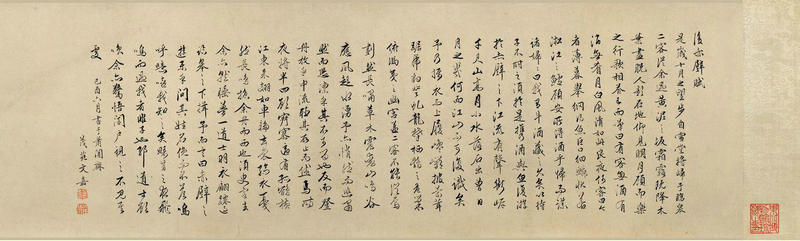 後赤壁賦
是歲十月之望步自雪堂將歸于臨皋
二客從余過黃泥之坂霜露既降木
葉盡脫人影在地仰見明月顧而樂
之行歌相答已而嘆曰有客無酒有酒
無肴月白風清如此良夜何客曰今
者薄暮舉網得魚巨口細鱗狀若
淞江之鱸顧安所得酒乎歸而謀
諸婦婦曰我有斗酒藏之久矣以待
子不時之須於是攜酒與魚復游
於赤壁之下江流有聲斷岸
千尺山高月小水落石出曾日
月之幾何而江山不可復識矣
予乃攝衣而上履巉巖披蒙茸
踞虎豹登虬龍攀棲鶻之危巢
俯馮夷之幽宮蓋二客不能從焉
劃然長嘯草木震動山鳴谷
應風起水湧予亦悄然而悲肅
然而恐凜乎其不可留也反而登
舟放乎中流聽其所止而休焉時
夜將半四顧寂寥適有孤鶴橫
江東來翅如車輪玄裳縞衣戛
然長鳴掠余舟而西也須臾客去
余亦就睡夢一道士羽衣翩躚過
臨皋之下揖予而言曰赤壁之
遊樂乎問其姓名俛而不答嗚
呼噫嘻我知之矣疇昔之夜飛
鳴而過我者非子也邪道士顧
笑余亦驚悟開戶視之不見其
處
己酉六月書于蕭閒齋
茂苑文嘉